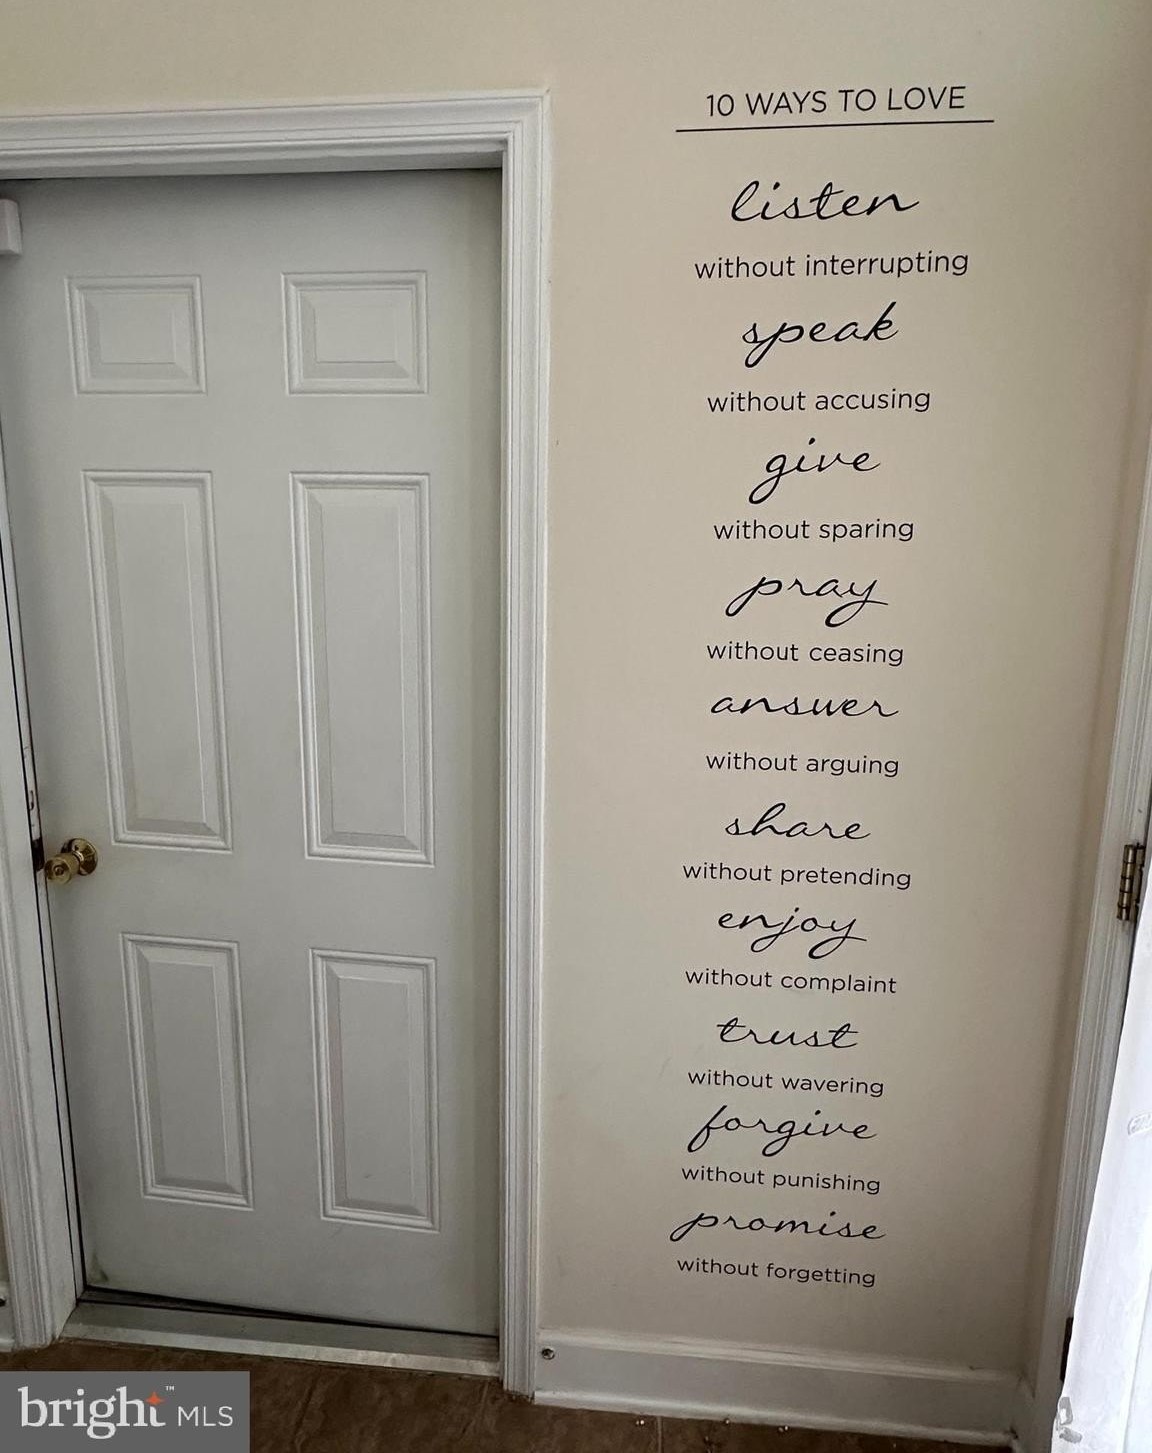 10 WAYS TO LOVE
listen
without interrupting
speak
without accusing
give
without sparing
pray
without ceasing
answer
without arguing
share
without pretending
enjoy
without complaint
trust
without wavering
forgive
without punishing
promise
without forgetting
bright™ MLS